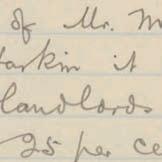 of Mr. M
Larkin it
landlords
25 per ce